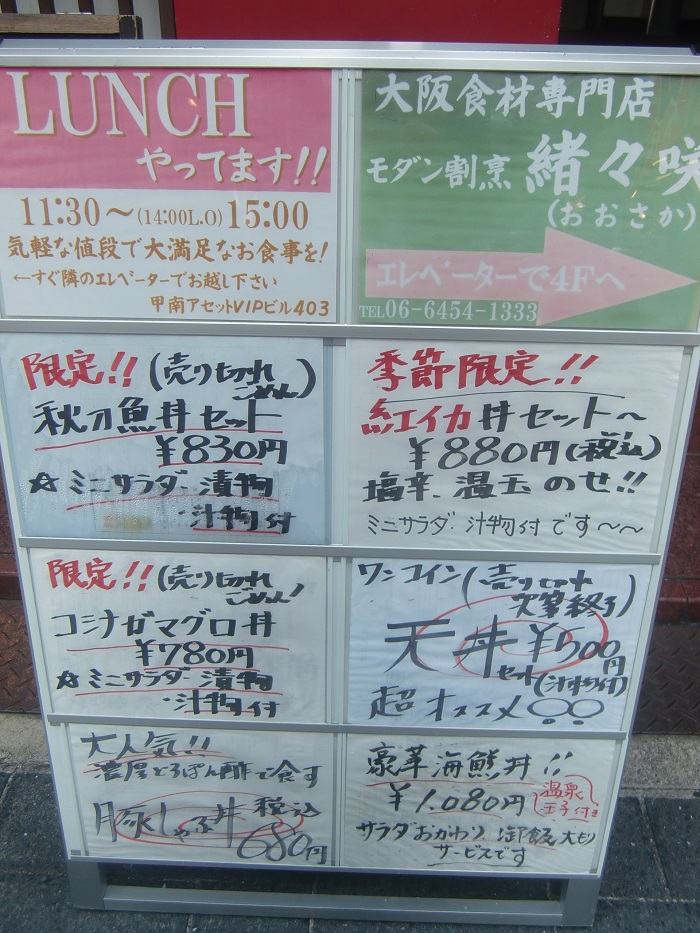 LUNCH
やってます!!
11:30～(14:00L.O)15:00
気軽な値段で大満足なお食事を!
←すぐ隣のエレベーターでお越し下さい
甲南アセットVIPビル403
大阪食材専門店
モダン割烹 緒々咲
(おおさか)
エレベーターで4Fへ
TEL06-6454-1333
限定!!(売り切れ
ごめん)
秋刀魚丼セット
¥830円
☆ミニサラダ 漬物
・汁物付
季節限定!!
紅イカ丼セット～
¥880円(税込)
塩辛、温玉のせ!!
ミニサラダ 汁物付です～～
限定!!(売り切れ
ごめん!
コシナガマグロ丼
¥780円
☆ミニサラダ 漬物
・汁物付
ワンコイン(売り切れ
次第終了)
天丼 ¥500円
セット(汁物付)
超オススメ
大人気!!
濃厚どろぽん酢で食す
豚しゃぶ丼 税込
680円
豪華海鮮丼!!
¥1.080円
温泉
玉子付き
サラダおかわり 御飯大モリ
サービスです